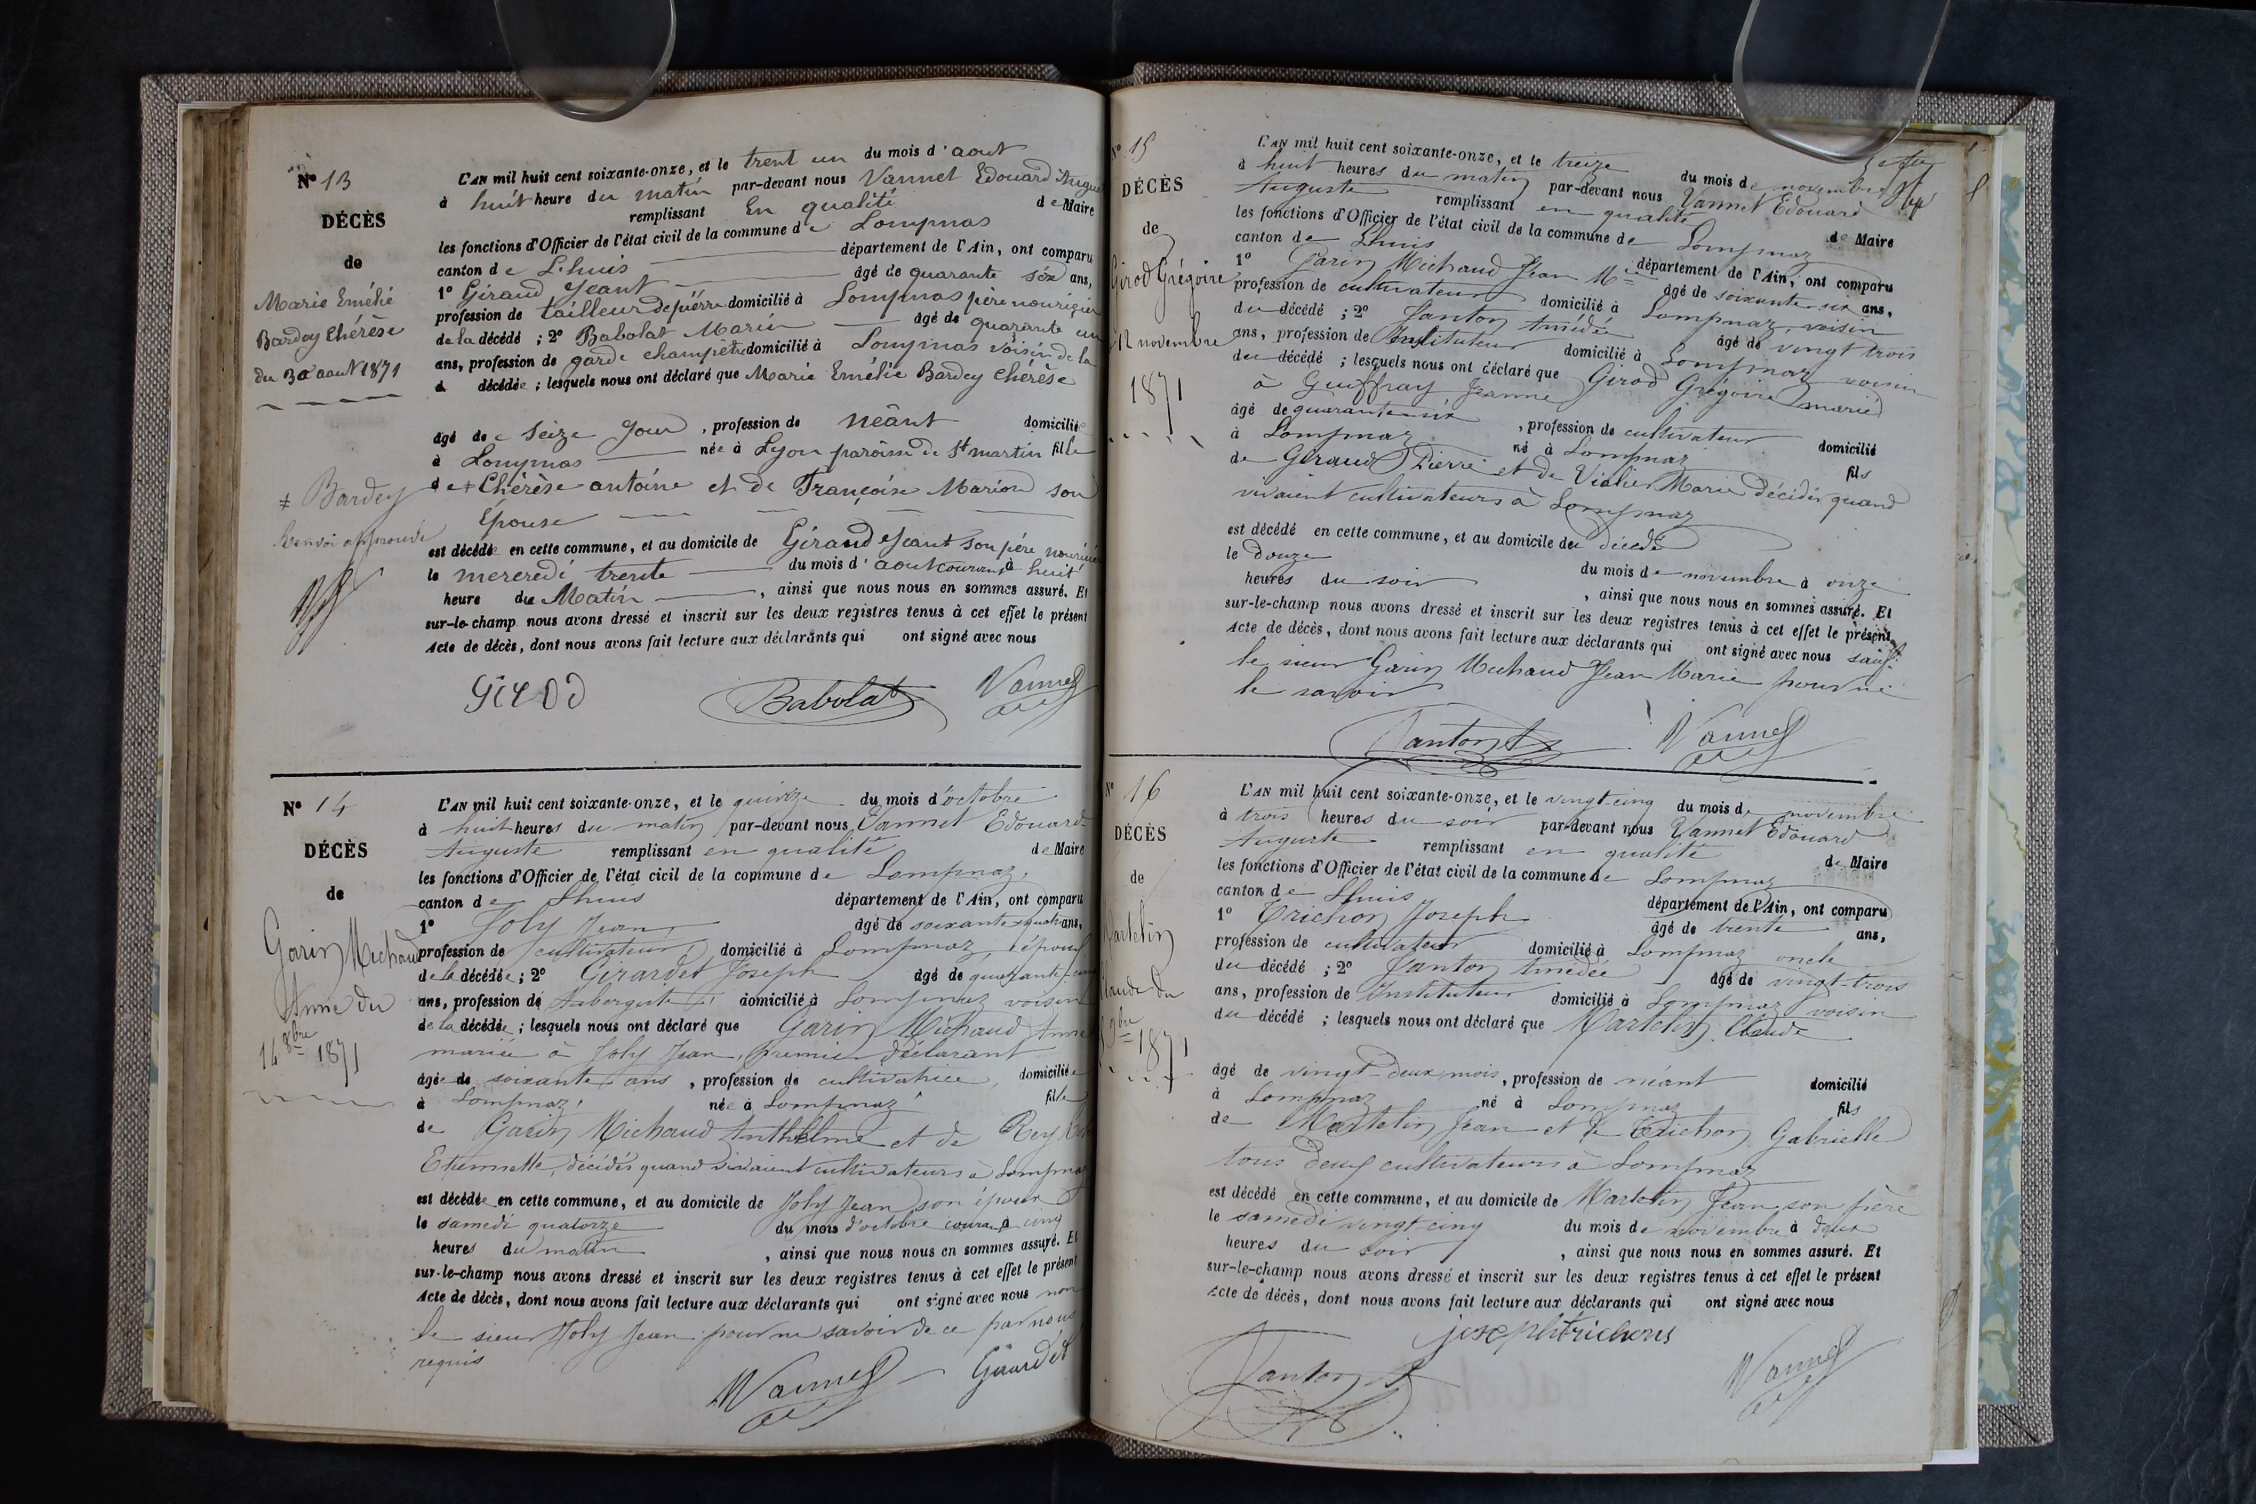 Nº 13
DÉCÈS
de
Marie Emélie
Bardey Chérèse
du 30 aout 1871
L'AN mil huit cent soixante-onze, et le trent un du mois d'aout
à huit heure du matin par-devant nous Vannet Edouard Augu
remplissant En qualité de Maire
les fonctions d'Officier de l'état civil de la commune de Lompnas
canton de L'huis département de l'Ain, ont comparu
1º Giraud Jeant âgé de quarante séx ans,
profession de tailleur depiérre domicilié à Lompnas père nouricier
de la décédé ; 2º Babolat Marin âgé de quarante un
ans, profession de garde champêtre domicilié à Lompnas voisin de la
décédée ; lesquels nous ont déclaré que Marie Emélie Bardey Chérèse
âgé de seize jour , profession de néant domiciliée
à Lompnas née à Lyon paroisse de St martin fille
‡ Bardey
Renvoi approuvé
de ‡ Chérèse antoine et de Françoise Marion son
Epouse
est décédée en cette commune, et au domicile de Giraud Jeant son père nouricié
le mercredi trente du mois d'aout courant à huit
heure du Matin , ainsi que nous nous en sommes assuré. Et
sur-le-champ nous avons dressé et inscrit sur les deux registres tenus à cet effet le présent
Acte de décès, dont nous avons fait lecture aux déclarants qui ont signé avec nous
Girod Babolat Vannet
Nº 14
DÉCÈS
de
Garin Michaud
Anne du
14 8bre 1871
L'AN mil huit cent soixante-onze, et le quinze du mois d'octobre
à huit heures du matin par-devant nous Vannet Edouard
Auguste remplissant en qualité de Maire
les fonctions d'Officier de l'état civil de la commune de Lompnaz,
canton de Lhuis département de l'Ain, ont comparu
1º Joly Jean, âgé de soixante-quatre ans,
profession de cultivateur, domicilié à Lompnaz, époux
de la décédée ; 2º Girardet Joseph âgé de quarante-
ans, profession de Aubergiste, domicilié à Lompnaz voisin
de la décédée ; lesquels nous ont déclaré que Garin Michaud Anne
mariée à Joly Jean, premier déclarant
âgée de soixante ans , profession de cultivatrice, domiciliée
à Lompnaz, née à Lompnaz fille
de Garin Michaud Anthelme et de Rey
Etiennette, décédés quand vivaient cultivateurs à Lompnaz
est décédée en cette commune, et au domicile de Joly Jean son époux
le samedi quatorze du mois d'octobre courant à cinq
heures du matin , ainsi que nous nous en sommes assuré. Et
sur-le-champ nous avons dressé et inscrit sur les deux registres tenus à cet effet le présent
Acte de décès, dont nous avons fait lecture aux déclarants qui ont signé avec nous non
le sieur Joly Jean pour ne savoir de ce par nous
requis
Vannet Girardet
Nº 15
DÉCÈS
de
Girod Grégoire
12 novembre
1871
L'AN mil huit cent soixante-onze, et le treize du mois de novembre
à huit heures du matin par-devant nous Vannet Edouard
Auguste remplissant en qualité de Maire
les fonctions d'Officier de l'état civil de la commune de Lompnaz
canton de Lhuis département de l'Ain, ont comparu
1º Garin Michaud Jean Mie âgé de soixante six ans,
profession de cultivateur domicilié à Lompnaz, voisin
du décédé ; 2º Janton Amédée âgé de vingt trois
ans, profession de Instituteur domicilié à Lompnaz voisin
du décédé ; lesquels nous ont déclaré que Girod Grégoire marié
à Guiffray Jeanne
âgé de quarante-six , profession de cultivateur domicilié
à Lompnaz né à Lompnaz fils
de Giraud Pierre et de Viallier Marie décédés quand
vivaient cultivateurs à Lompnaz
est décédé en cette commune, et au domicile du décédé
le Douze du mois de novembre à onze
heures du soir , ainsi que nous nous en sommes assuré. Et
sur-le-champ nous avons dressé et inscrit sur les deux registres tenus à cet effet le présent
Acte de décès, dont nous avons fait lecture aux déclarants qui ont signé avec nous sauf
le sieur Garin Michaud Jean Marie pour ne
le savoir
Janton A Vannet
Nº 16
DÉCÈS
de
Martelin
Claude du
9bre 1871
L'AN mil huit cent soixante-onze, et le vingt-cinq du mois de novembre
à trois heures du soir par-devant nous Vannet Edouard
Auguste remplissant en qualité de Maire
les fonctions d'Officier de l'état civil de la commune de Lompnaz
canton de Lhuis département de l'Ain, ont comparu
1º Trichon Joseph âgé de trente ans,
profession de cultivateur domicilié à Lompnaz oncle
du décédé ; 2º Janton Amédée âgé de vingt-trois
ans, profession de Instituteur domicilié à Lompnaz voisin
du décédé ; lesquels nous ont déclaré que Martelin Claude
âgé de vingt-deux mois , profession de néant domicilié
à Lompnaz né à Lompnaz fils
de Martelin Jean et de Trichon Gabrielle
tous deux cultivateurs à Lompnaz
est décédé en cette commune, et au domicile de Martelin Jean son père
le samedi vingt cinq du mois de novembre à deux
heures du soir , ainsi que nous nous en sommes assuré. Et
sur-le-champ nous avons dressé et inscrit sur les deux registres tenus à cet effet le présent
Acte de décès, dont nous avons fait lecture aux déclarants qui ont signé avec nous
joseph trichons
Janton A Vannet